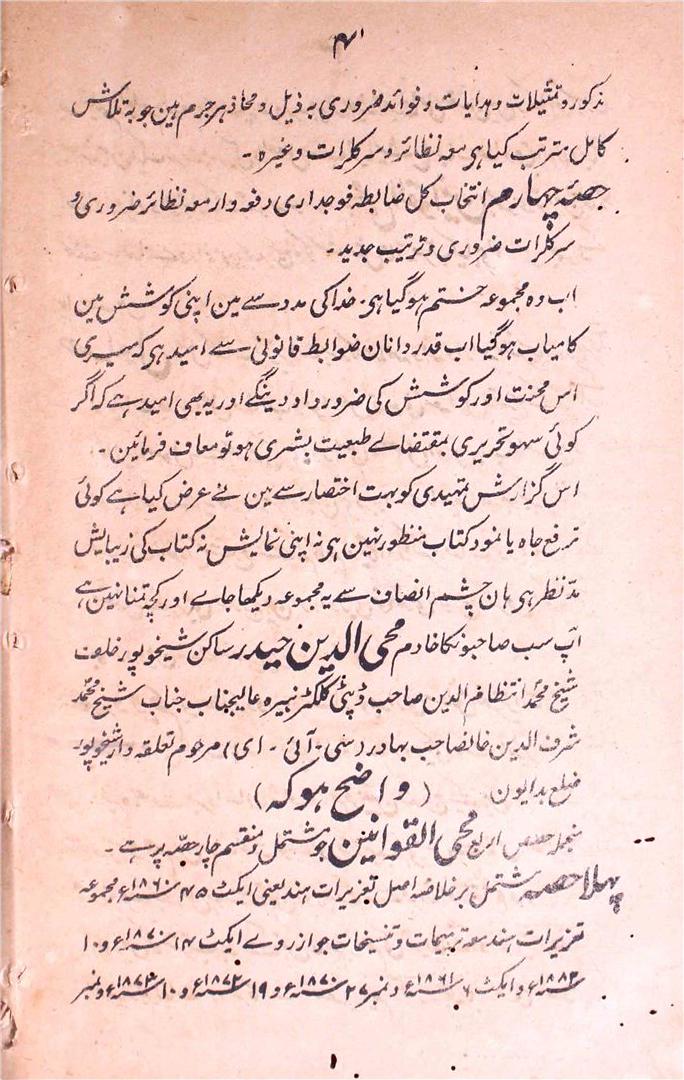 ۴
مذکور و تمثیلات و ہدایات و فوائد ضروری بہ ذیل و محاذ ہر جرم ہین جو بہ تلاش
کامل مترتب کیا ہی معہ نظائر و سرکلرات وغیرہ ۔
حصۂ چہارم انتخاب کل ضابطہ فوجداری دفعہ وار معہ نظائر ضروری و
سرکلرات ضروری و ترتیب جدید ۔
اب وہ مجموعہ ختم ہو گیا ہی ۔ خدا کی مدد سے مین اپنی کوشش مین
کامیاب ہو گیا اب قدر دانان ضوابط قانونی سے امید ہی کہ میری
اس محنت اور کوشش کی ضرور داد دینگے اور یہ بھی امید ہے کہ اگر
کوئی سہو تحریری بمقتضاے طبعیت بشری ہو تو معاف فرمائین ۔
اس گزارش تمہیدی کو بہت اختصار سے مین نے عرض کیا ہے کوئی
ترفع جاہ یا نمود کتاب منظور نہین ہی نہ اپنی نمایش نہ کتاب کی زیبایش
مدّ نظر ہی ہان چشم انصاف سے یہ مجموعہ دیکھا جاے اور کچھ تمنا نہین ہے
آپ سب صاحبونکا خادم محی الدین حیدر ساکن شیخوپور خلف
شیخ محمد انتظام الدین صاحب ڈپٹی کلکٹر نبیرہ عالیجناب جناب شیخ محمد
شرف الدین خانصاحب بہادر (سی ۔ آئی ۔ ای) مرحوم تعلقہ دار شیخوپور
ضلع بدایون (واضح ہو کہ)
منجملہ حصص اربع محی القوانین جو مشتمل و منقسم چار حصّہ پر ہے ۔
پہلا حصہ مشتمل بر خلاصہ اصل تعزیرات ہند یعنی ایکٹ ۴۵ سنہ ۱۸۶۰ء مجموعہ
تعزیرات ہند معہ ترمیمات و تنسیخات جو از روے ایکٹ ۱۴ سنہ ۱۸۷۰ء و ۱۰
سنہ ۱۸۸۲ء و ایکٹ ۶ سنہ ۱۸۶۱ء و نمبر ۲۷ سنہ ۱۸۷۰ء و ۱۹ سنہ ۱۸۷۲ء و ۱۰ سنہ ۱۸۷۳ء و نمبر